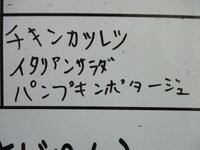 チキンカツレツ
イタリアンサラダ
パンプキンポタージュ